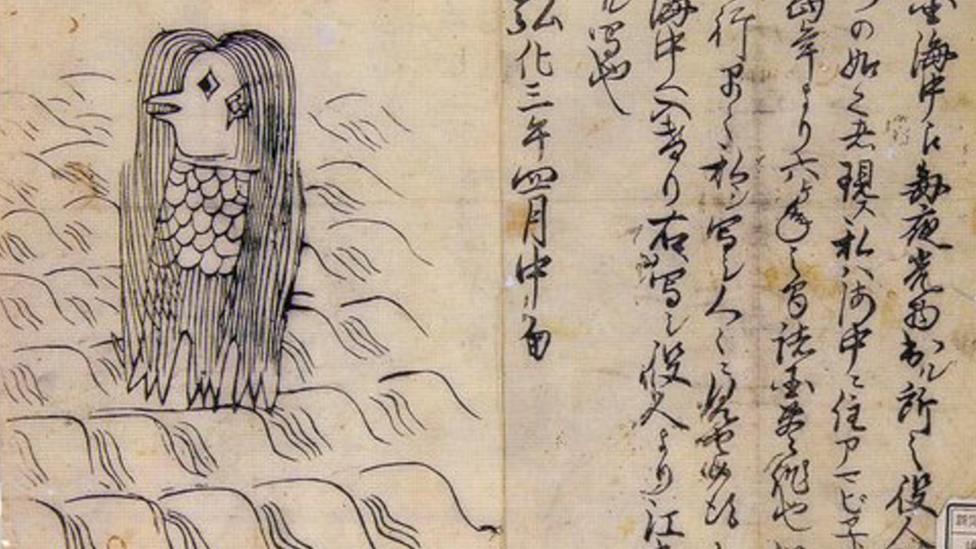 海中え毎夜光物出ル所之役人
の如之者現ス私ハ海中ニ住アマビヱ
年より六ヶ年之間諸国豊作也
行早々私ヲ写シ人々ニ見セ候
海中へ入けり右写シ役人より江
ル写也
弘化三年四月中旬